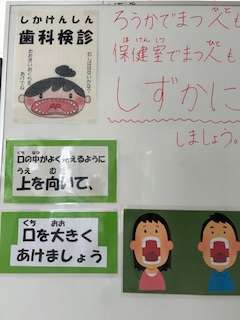 しかけんしん
歯科検診
ろうかでまつ人も
ひと
保健室でまつ人も
ほけんしつ
ひと
しずかに
しましょう。
くち なか
口の中がよく見えるように
うえ む
上を向いて、
くち おお
口を大きく
あけましょう